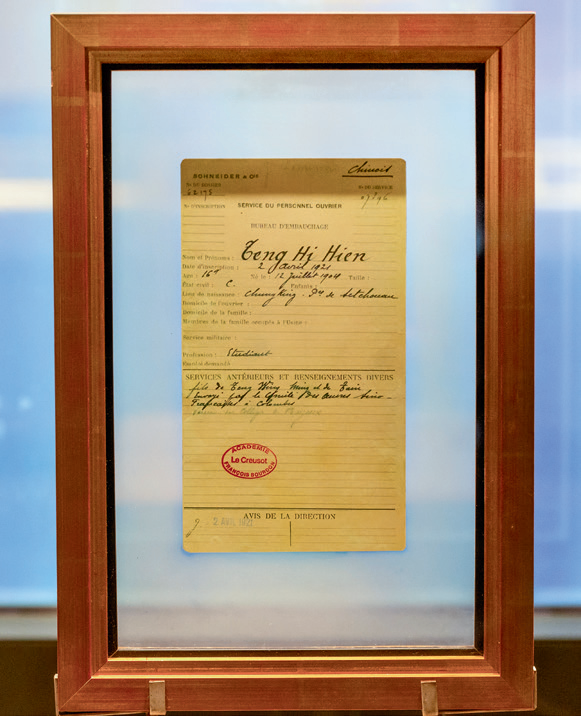 SCHNEIDER & Cie
Chinois
No DU DOSSIER
No DU CREUSOT
No D'INSCRIPTION
SERVICE DU PERSONNEL OUVRIER
BUREAU D'EMBAUCHAGE
Nom et Prénoms : Teng Hi Hien
Date d'inscription : 2 Avril 1921
Age : 16 Né le : 12 Juillet 1904 Taille :
État civil : C. Enfants :
Lieu de naissance : Chungking. de Setchouan
Domicile de l'ouvrier :
Domicile de la famille :
Membres de la famille occupés à l'Usine :
Service militaire :
Profession : Etudiant
Emploi demandé
SERVICES ANTÉRIEURS ET RENSEIGNEMENTS DIVERS
fils de Teng Wen Ming et de
Envoyé par le Comité des œuvres sino-
françaises à Colombes
au Collège de
ACADEMIE
Le Creusot
FRANÇOIS BOURDON
AVIS DE LA DIRECTION
2 AVR. 1921